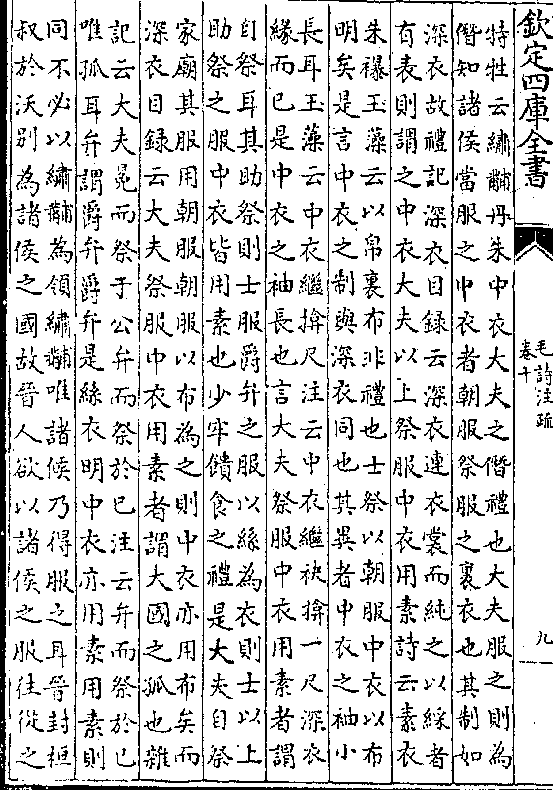 欽定四庫全書
毛詩注疏
卷十
九
特牲云繡黼丹朱中衣大夫之僭禮也大夫服之則為
僭知諸侯當服之中衣者朝服祭服之裏衣也其制如
深衣故禮記深衣目録云深衣連衣裳而純之以綵者
有表則謂之中衣大夫以上祭服中衣用素詩云素衣
朱襮玉藻云以帛裏布非禮也士祭以朝服中衣以布
明矣是言中衣之制與深衣同也其異者中衣之袖小
長耳玉藻云中衣繼揜尺注云中衣繼袂揜一尺深衣
緣而已是中衣之袖長也言大夫祭服中衣用素者謂
自祭耳其助祭則士服爵弁之服以絲為衣則士以上
助祭之服中衣皆用素也少牢饋食之禮是大夫自祭
家廟其服用朝服朝服以布為之則中衣亦用布矣而
深衣目錄云大夫祭服中衣用素者謂大國之孤也雜
記云大夫冕而祭于公弁而祭於已注云弁而祭於已
唯孤耳弁謂爵弁爵弁是絲衣明中衣亦用素用素則
同不必以繡黼為領繡黼唯諸侯乃得服之耳晉封桓
叔於沃别為諸侯之國故晉人欲以諸侯之服往從之